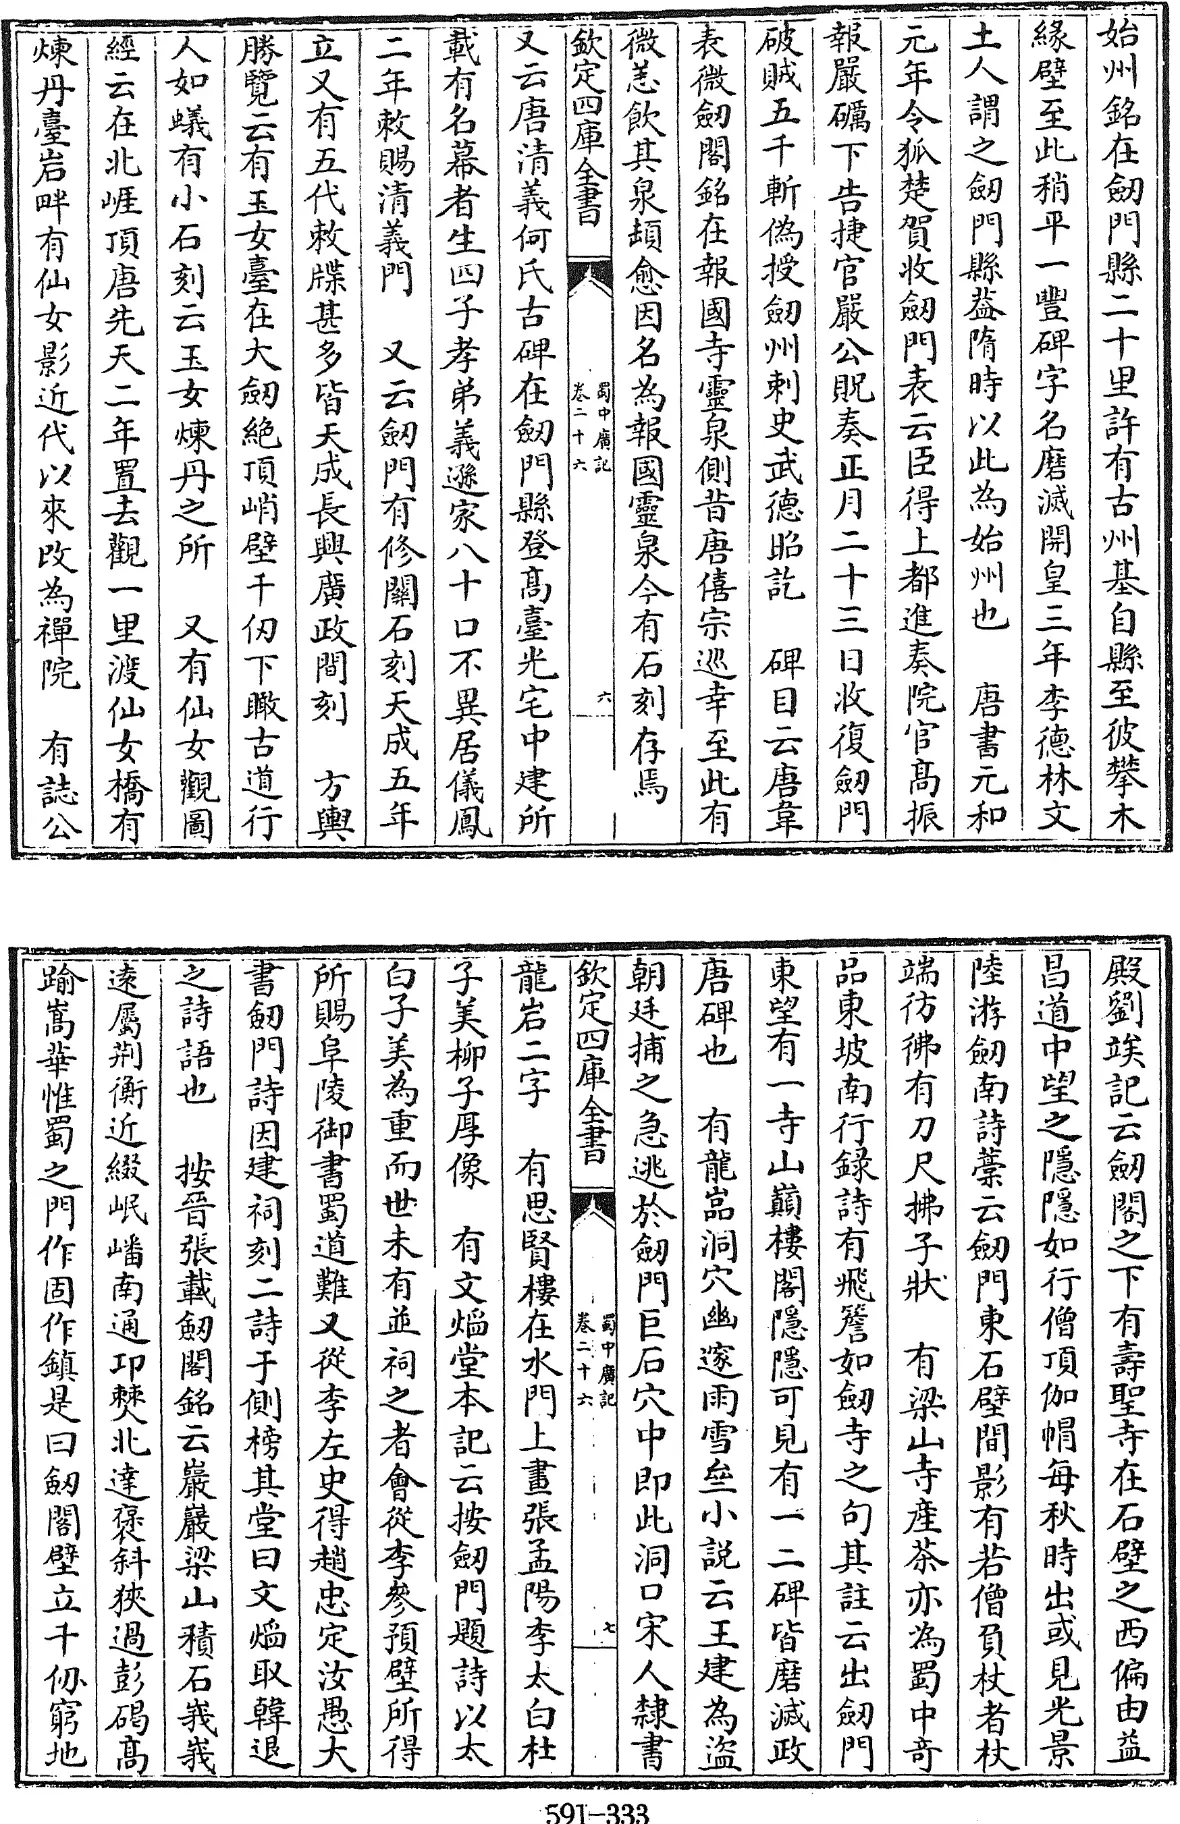 始州銘在劒門縣二十里許有古州基自縣至彼攀木
緣壁至此稍平一豐碑字名磨滅開皇三年李德林文
土人謂之劒門縣葢隋時以此為始州也　唐書元和
元年令狐楚賀收劒門表云臣得上都進奏院官髙振
報嚴礪下告捷官嚴公貺奏正月二十三日收復劒門
破賊五千斬偽授劒州刺史武徳昭訖　碑目云唐韋
表微劒閣銘在報國寺靈泉側昔唐僖宗巡幸至此有
微恙飲其泉頓愈因名為報國靈泉今有石刻存焉
欽定四庫全書
蜀中廣記
卷二十六
六
又云唐清義何氏古碑在劒門縣登髙臺光宅中建所
載有名幕者生四子孝弟義遜家八十口不異居儀鳳
二年敕賜清義門　又云劒門有修關石刻天成五年
立又有五代敕牒甚多皆天成長興廣政間刻　方輿
勝覽云有玉女臺在大劒絶頂峭壁千仞下瞰古道行
人如蟻有小石刻云玉女煉丹之所　又有仙女觀圖
經云在北崕頂唐先天二年置去觀一里渡仙女橋有
煉丹臺岩畔有仙女影近代以來改為禪院　有誌公
殿劉竢記云劒閣之下有壽聖寺在石壁之西偏由益
昌道中望之隱隱如行僧頂伽帽每秋時出或見光景
陸游劒南詩藁云劒門東石壁間影有若僧負杖者杖
端彷彿有刀尺拂子狀　有梁山寺産茶亦為蜀中竒
品東坡南行録詩有飛簷如劒寺之句其註云出劒門
東望有一寺山巔樓閣隱隱可見有一二碑皆磨滅政
唐碑也　有龍嵓洞穴幽邃雨雪垒小説云王建為盜
朝廷捕之急逃於劒門巨石穴中即此洞口宋人隸書
欽定四庫全書
蜀中廣記
卷二十六
七
龍岩二字　有思賢樓在水門上畫張孟陽李太白杜
子美柳子厚像　有文焰堂本記云按劒門題詩以太
白子美為重而世未有並祠之者會從李參預壁所得
所賜阜陵御書蜀道難又從李左史得趙忠定汝愚大
書劒門詩因建祠刻二詩于側榜其堂曰文焰取韓退
之詩語也　按晉張載劒閣銘云巖巖梁山積石峩峩
逺屬荆衡近綴岷嶓南通卭僰北達褒斜狹過彭碣髙
踰嵩華惟蜀之門作固作鎮是曰劒閣壁立千仞窮地
591-333